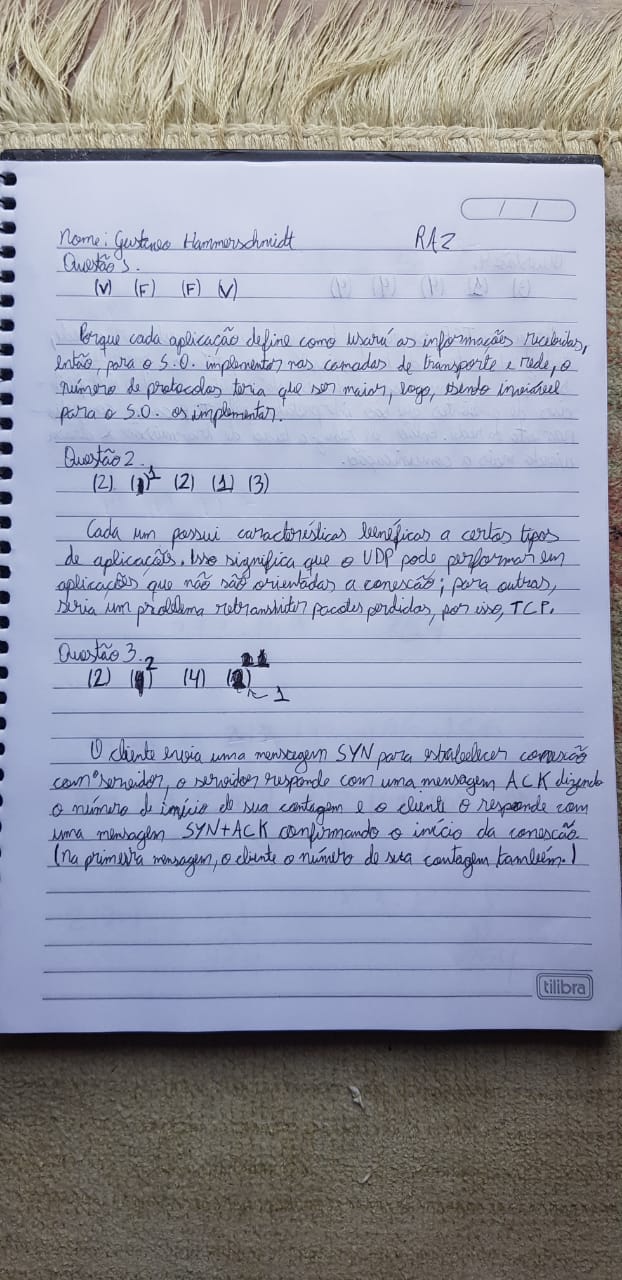 Nome: Gustavo Hammerschmidt RA2
Questão 1.
(V) (F) (F) (V)
Porque cada aplicação define como usará as informações recebidas,
então, para o S.O. implementar nas camadas de transporte e rede, o
número de protocolos teria que ser maior, logo, sendo inviável
para o S.O. os implementar.
Questão 2.
(2) (1) 1 (2) (1) (3)
Cada um possui características benéficas a certos tipos
de aplicação. Isso significa que o UDP pode performar em
aplicações que não são orientadas a conescão; para outras,
seria um problema retransmitir pacotes perdidos, por isso, TCP.
Questão 3.
(2) ( ) 2 (4) ( ) 1
O cliente envia uma mensagem SYN para estabelecer conescão
com o servidor, o servidor responde com uma mensagem ACK dizendo
o número d início de sua contagem e o cliente o responde com
uma mensagem SYN+ACK confirmando o início da conescão.
(Na primeira mensagem, o cliente o número de sua contagem também.)
tilibra